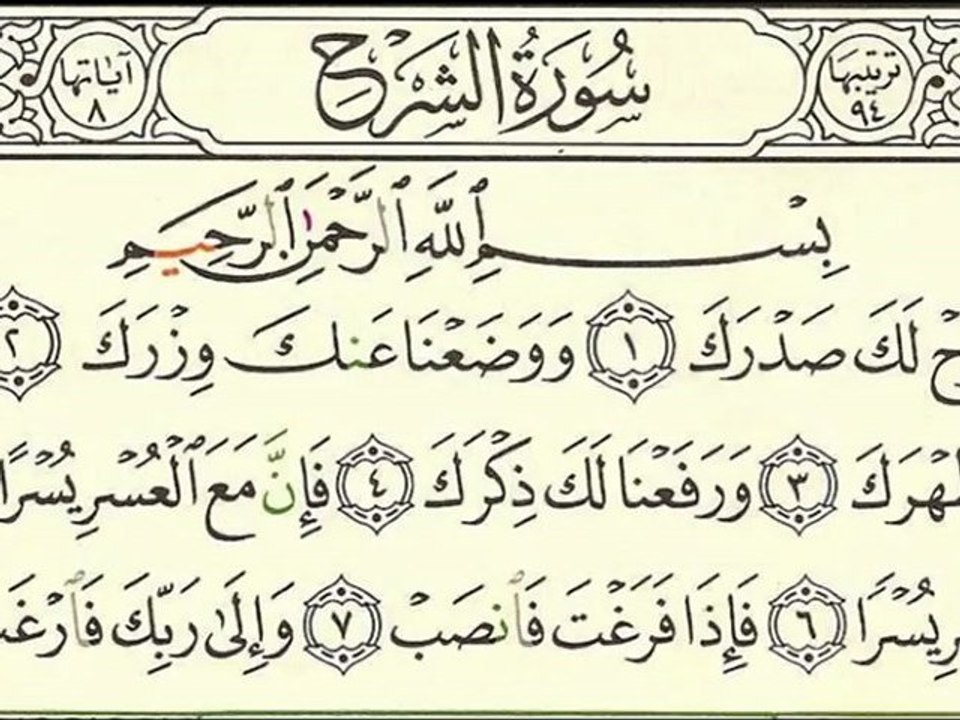 ترتيبها ٩٤ سُورَةُ الشَّرْحِ آيَاتها ٨
بِسْمِ ٱللَّهِ ٱلرَّحْمَٰنِ ٱلرَّحِيمِ
لَكَ صَدْرَكَ ١ وَوَضَعْنَا عَنكَ وِزْرَكَ ٢
٣ وَرَفَعْنَا لَكَ ذِكْرَكَ ٤ فَإِنَّ مَعَ ٱلْعُسْرِ يُسْرًا
يُسْرًا ٦ فَإِذَا فَرَغْتَ فَٱنصَبْ ٧ وَإِلَىٰ رَبِّكَ